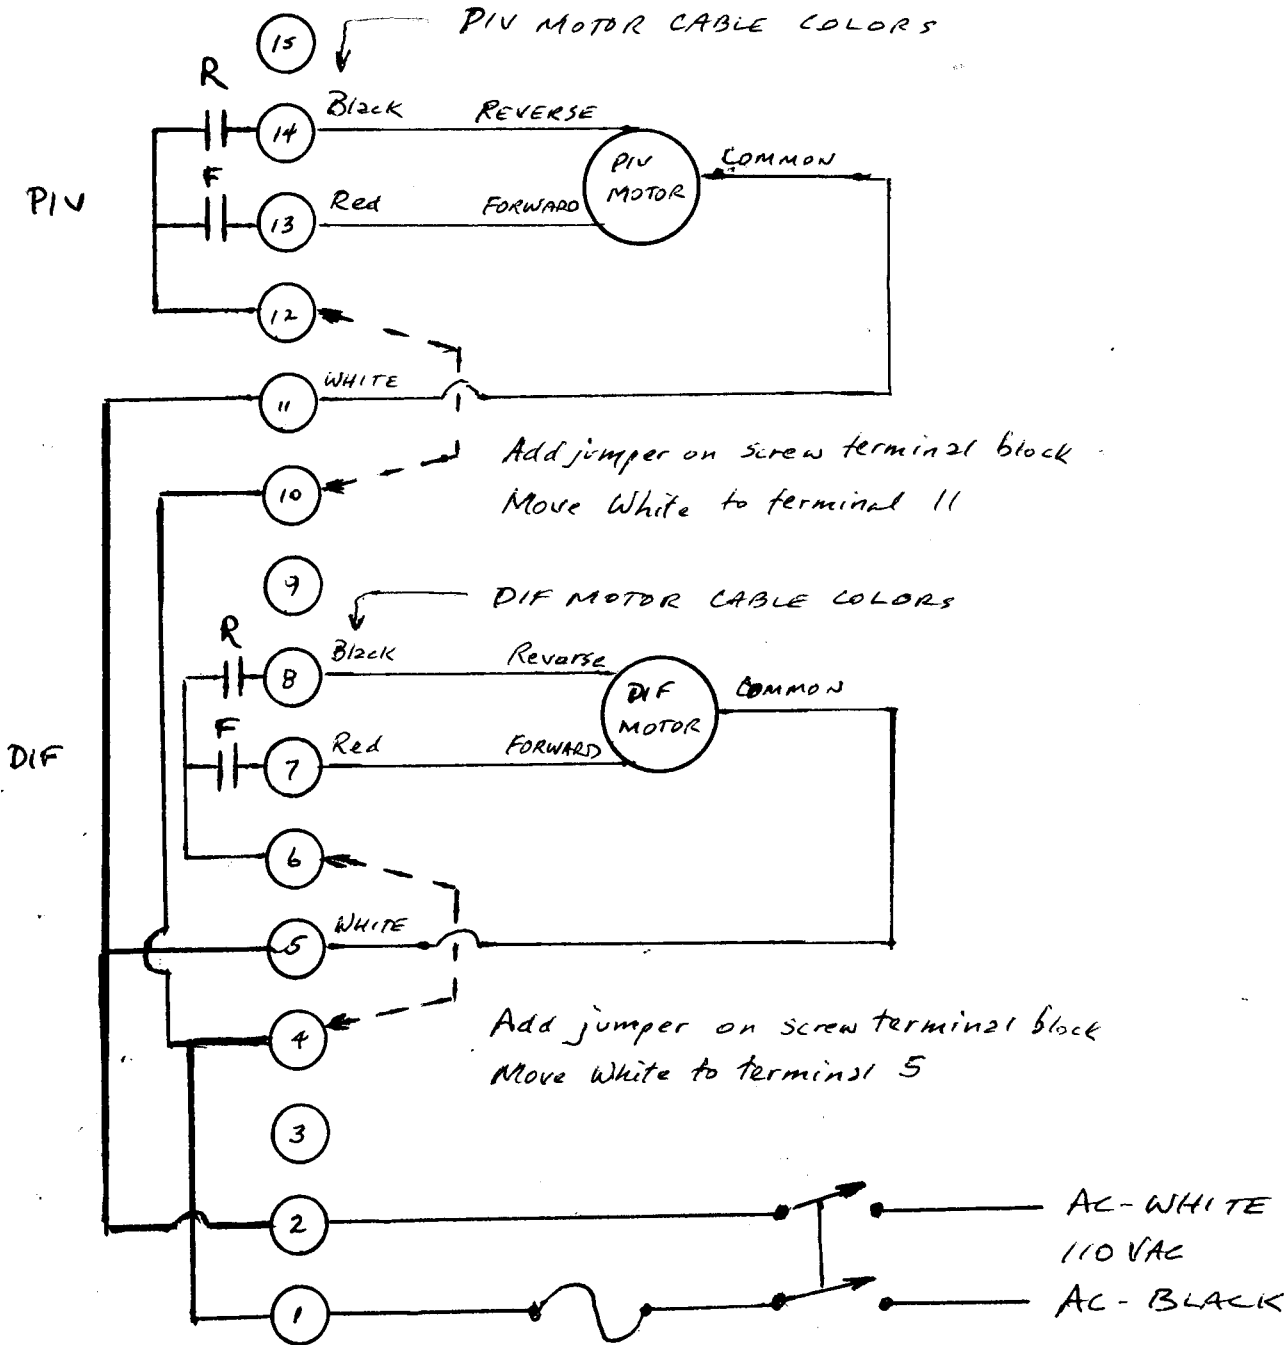 PIV MOTOR CABLE COLORS
15
R
14 Black REVERSE
PIV MOTOR
COMMON
PIV
F
13 Red FORWARD
12
11 WHITE
Add jumper on screw terminal block
10
Move White to terminal 11
9
DIF MOTOR CABLE COLORS
R
8 Black Reverse
DIF MOTOR
COMMON
DIF
F
7 Red FORWARD
6
5 WHITE
4
Add jumper on screw terminal block
Move White to terminal 5
3
2
AC-WHITE
110 VAC
1
AC-BLACK